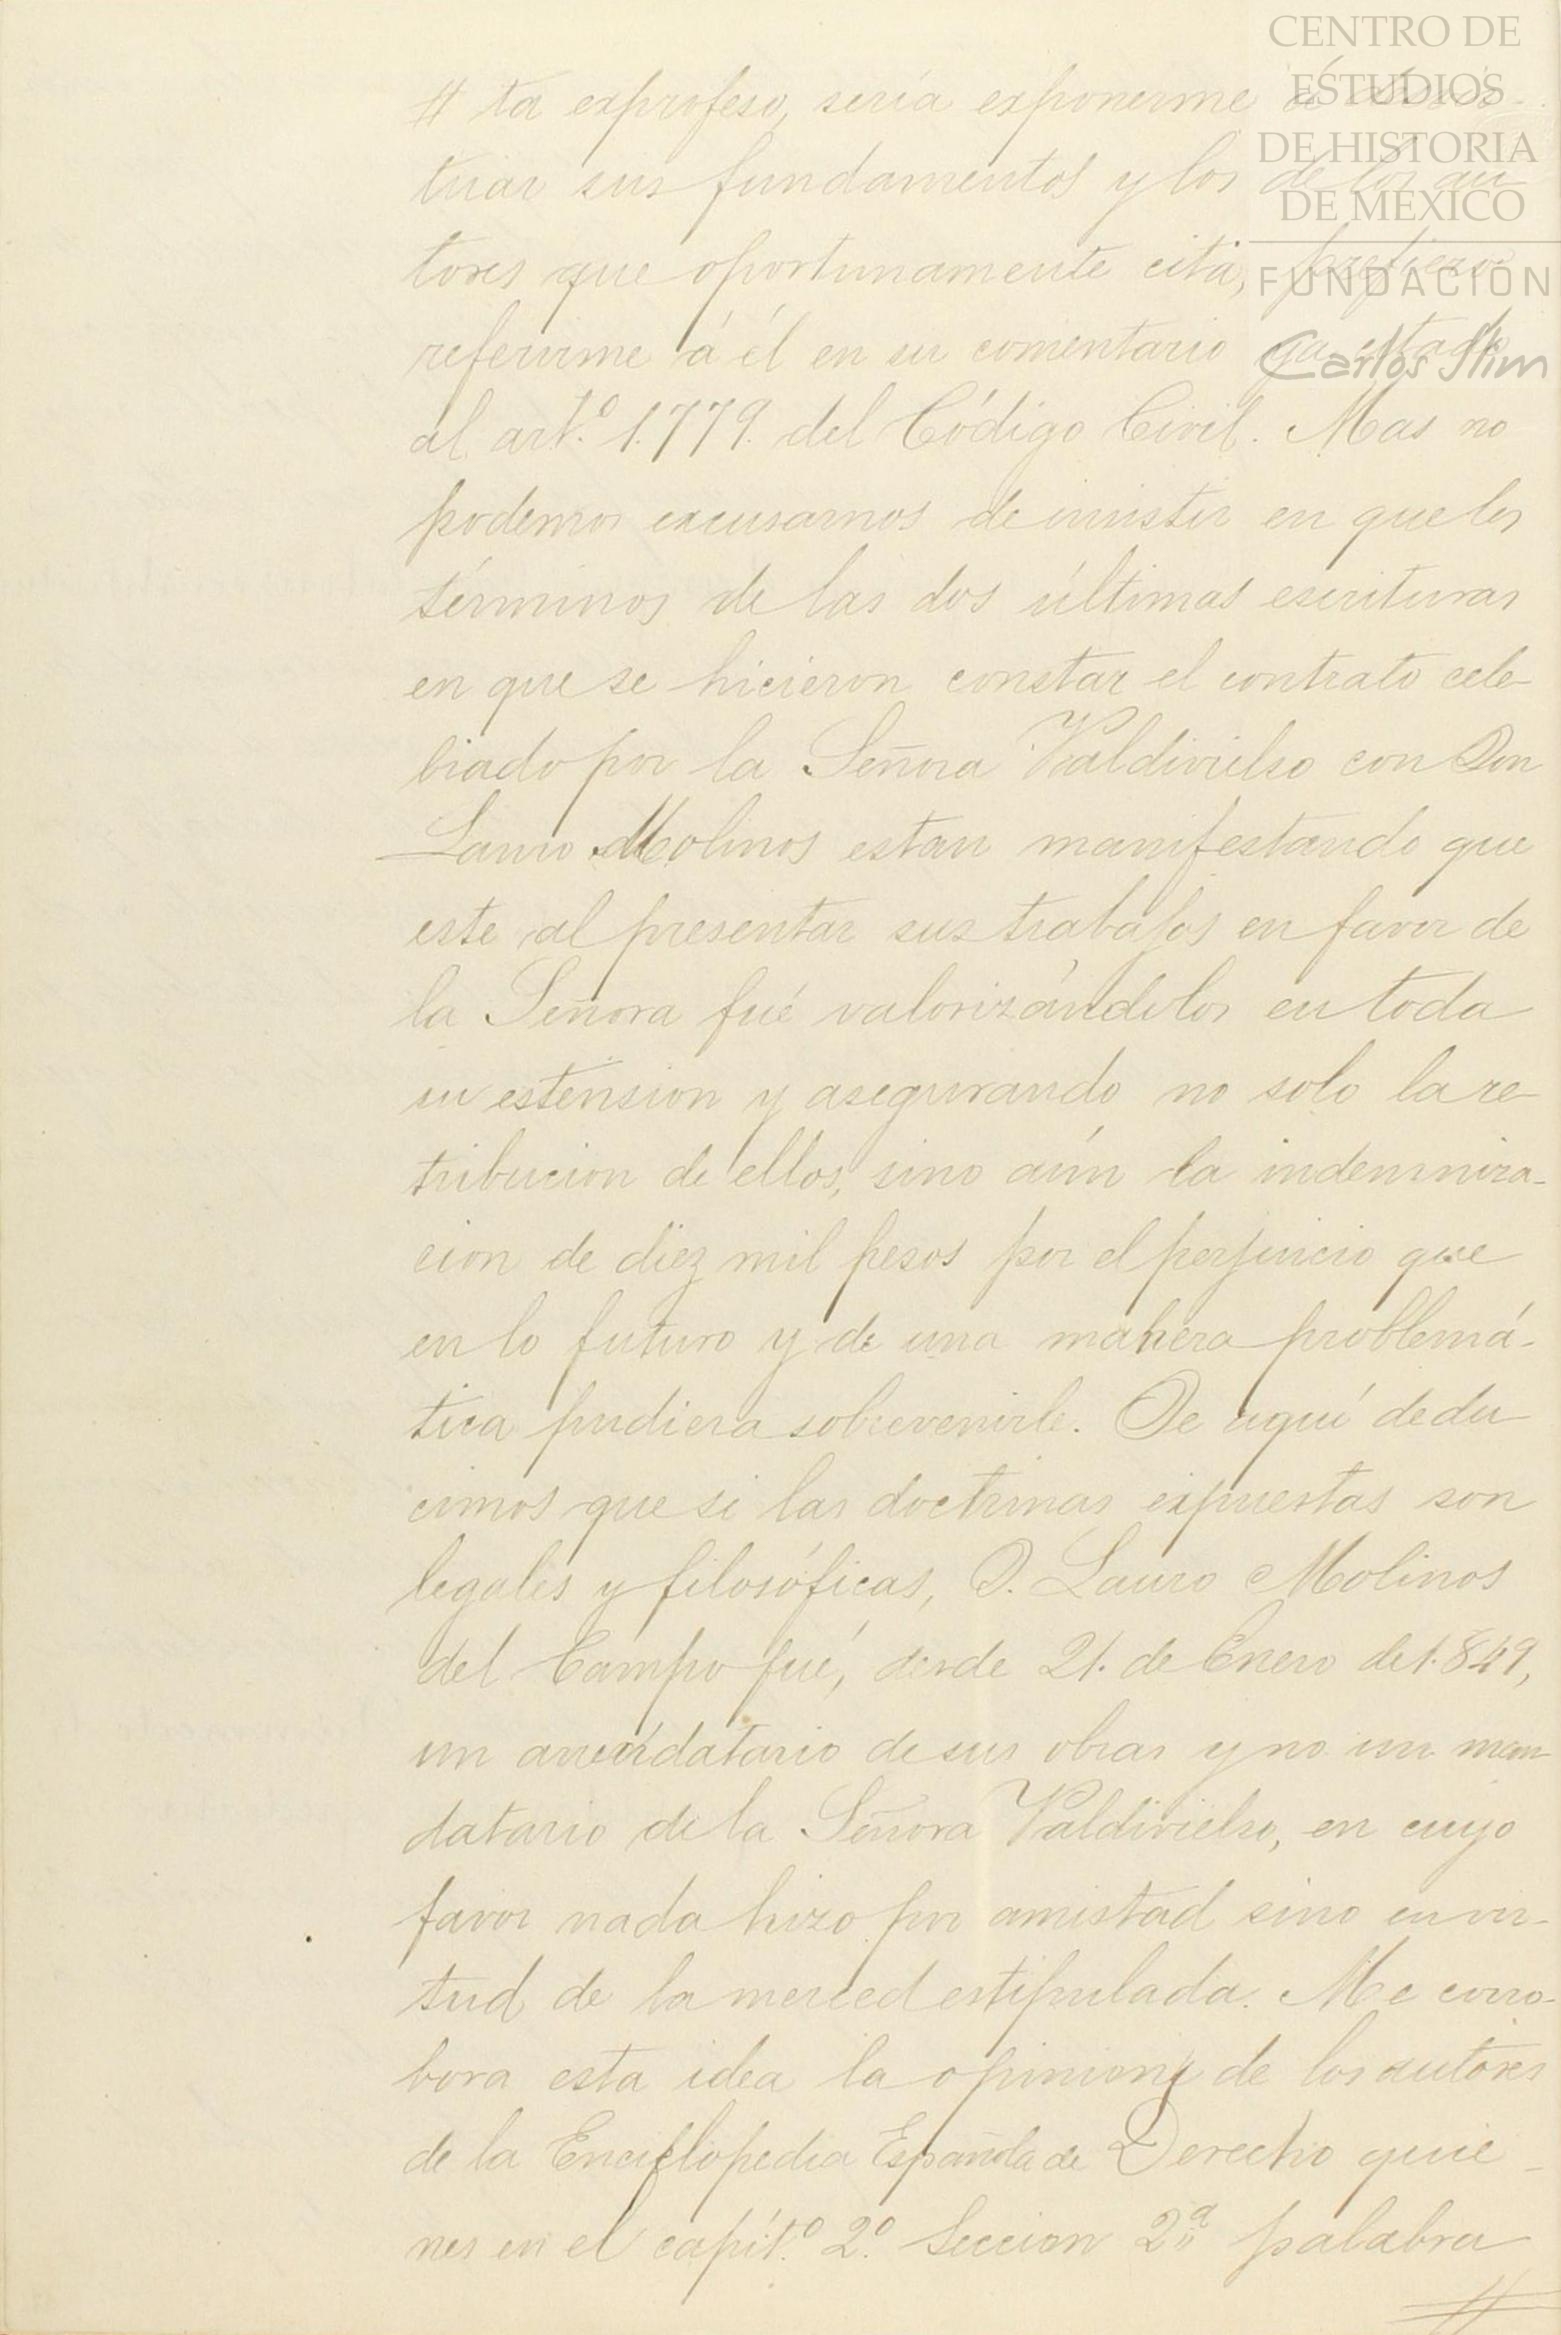 CENTRO DE
ESTUDIOS
DE HISTORIA
DE MEXICO
FUNDACIÓN
Carlos Slim
# ta exprofeso, sería exponerme á
tuar sus fundamentos y los de los au
tores que oportunamente cita, prefiero
referirme á él en su comentario ya citado
al art.º 1.779. del Código Civil. Mas no
podemos excusarnos de insistir en que los
términos de las dos últimas escrituras
en que se hicieron constar el contrato cele-
brado por la Señora Valdivielso con Don
Lauro Molinos estan manifestando que
este al presentar sus trabajos en favor de
la Señora fué valorizándolos en toda
su estension y asegurando no solo la re-
tribucion de ellos, sino aún la indemniza-
cion de diez mil pesos por el perjuicio que
en lo futuro y de una manera problemá-
tica pudiera sobrevenirle. De aquí dedu
cimos que si las doctrinas expuestas son
legales y filosóficas, D. Lauro Molinos
del Campo fué, desde 21. de Enero de 1.849,
un arrendatario de sus obras y no un man
datario de la Señora Valdivielso, en cuyo
favor nada hizo por amistad sino en vir-
tud de la merced estipulada. Me corro-
bora esta idea la opinion de los autores
de la Enciclopedia Española de Derecho quie-
nes en el capít.º 2.º Seccion 2ª palabra
#